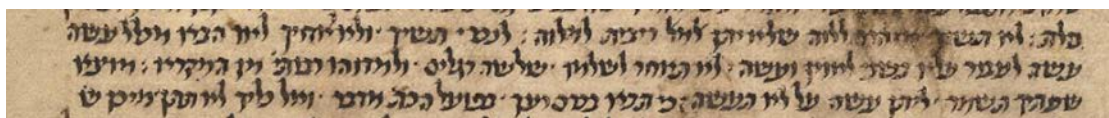 כלה: לא תשיך אזהרה ללוה שלא יתן ריבית למלוה: לנכ' תשיך ולא לאחיך לאו הבא מכלל עשה
עשה לעבור עליו בשני לאוין ועשה: לא תאחר לשלמו שלשה רגלים ולמדוהו רבותי' מן המקרא: מוצא
שפתיך תשמר ליתן עשה על לא תעשה: כי תבא בכרם רעך בפועל הכת' מדבר ואל כליך לא תתן מיכן ש